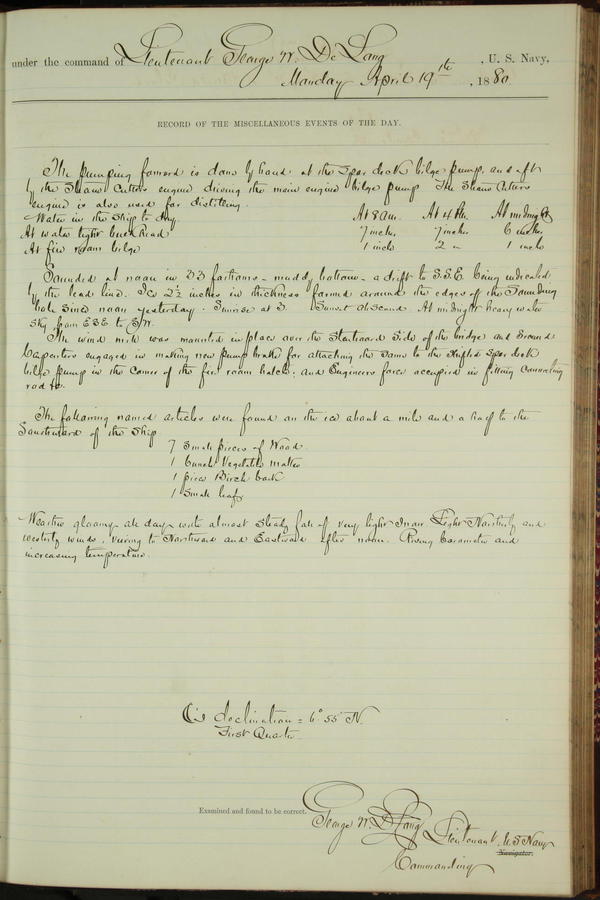 under the command of Lieutenant George W. De Long, U. S. Navy,
Monday April 19th, 1880.
RECORD OF THE MISCELLANEOUS EVENTS OF THE DAY.
The pumping forward is done by hand at the Spar deck bilge pump, and aft
by the Steam Cutters engine driving the main engine bilge pump The Steam Cutters
engine is also used for distilling.
Water in the Ship to day At 8 a.m. At 4 p.m. At midnight
At water tight bulkhead 7 inches 7 inches 6 inches
At fire room bilge 1 inch 2 in 1 inch
Sounded at noon in 33 fathoms - muddy bottom - a drift to S.S.E. being indicated
by the lead line. Ice 2½ inches in thickness formed around the edges of the Sounding
hole since noon yesterday. Sunrise at 3 Sunset obscured. At midnight heavy water
sky from ESE to SW.
The wind mill was mounted in place over the Starboard side of the bridge and secured
Carpenters engaged in making new pump brake for attaching the same to the
bilge pump in the corner of the fire room hatch; and Engineers force occupied in fitting connecting
rod &c.
The following named articles were found on the ice about a mile and a half to the
Southward of the Ship
7 Small pieces of Wood
1 bunch Vegetable matter
1 piece Birch bark
1 Small leaf
Weather gloomy all day with almost steady fall of very light snow Light Northerly and
westerly winds, veering to Northward and Eastward after noon. Rising barometer and
increasing temperature.
☾'s declination = 6° 55' N.
First Quarter
Examined and found to be correct.
George W. De Long Lieutenant U.S. Navy
Navigator.
Commanding